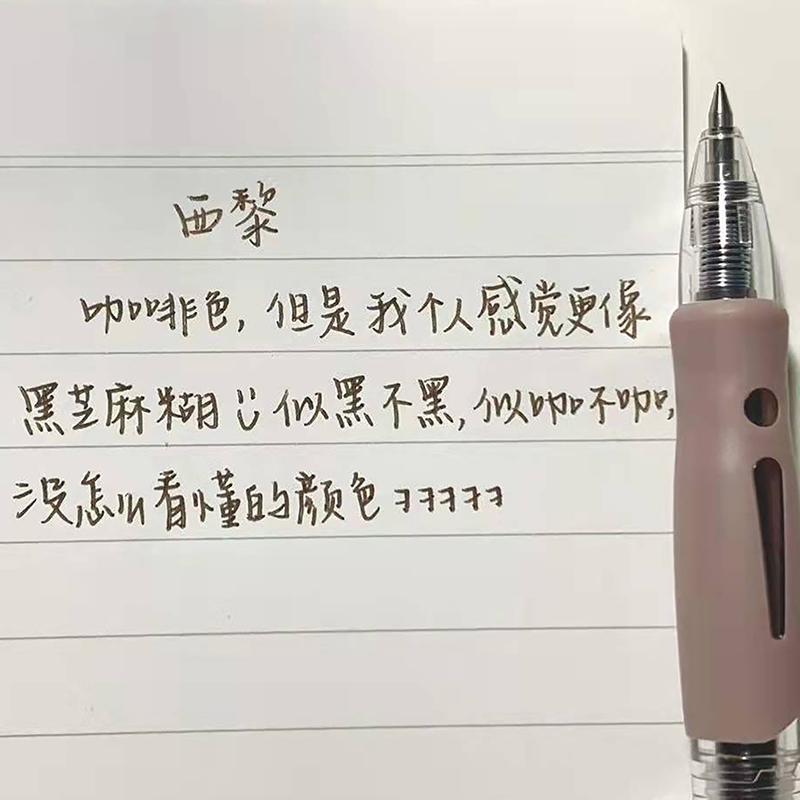 西黎
咖啡色,但是我个人感觉更像
黑芝麻糊:)似黑不黑,似咖不咖,
没怎么看懂的颜色ㅋㅋㅋㅋㅋ